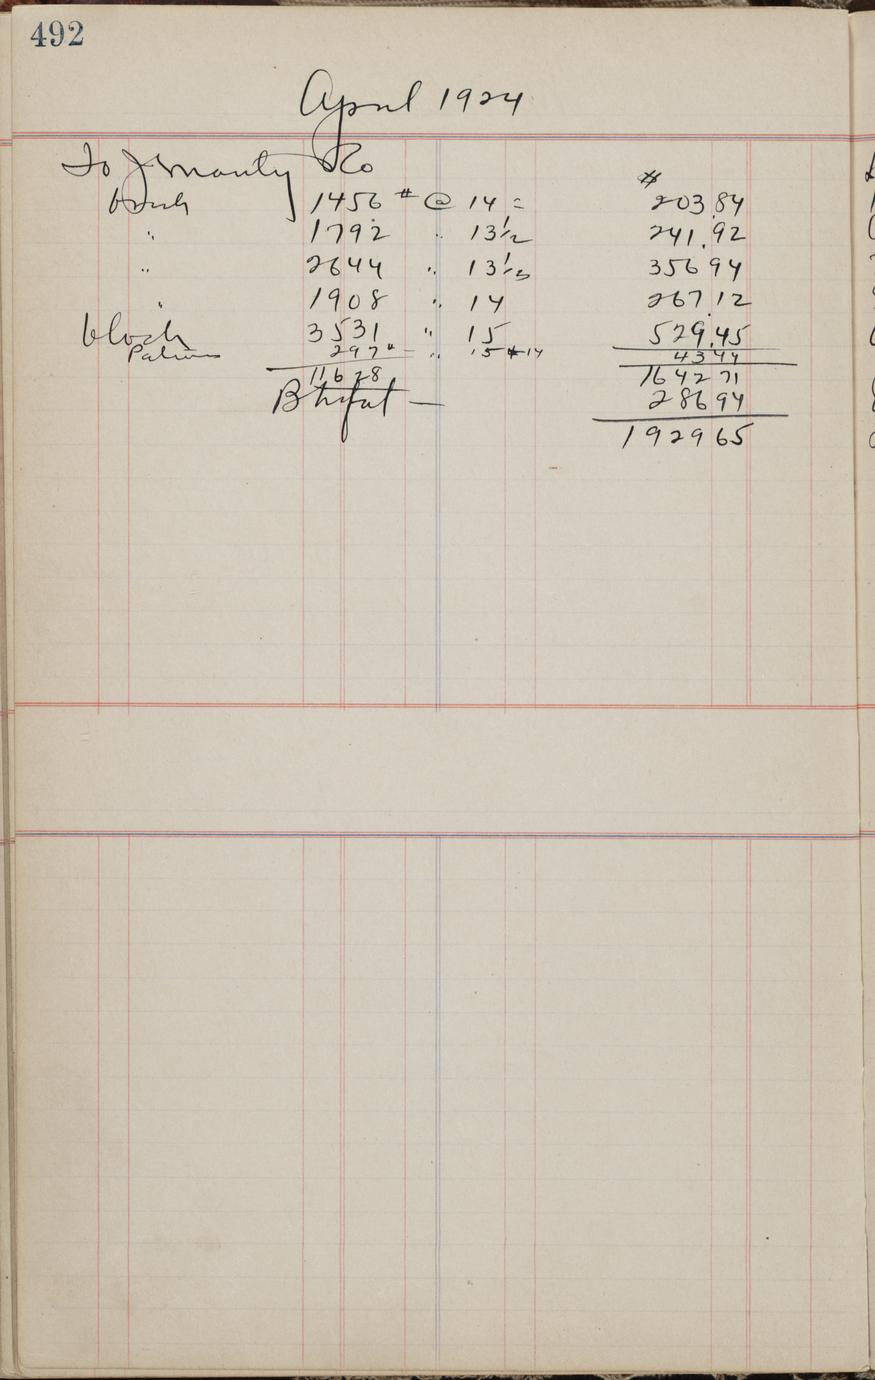 492
April 1924
To J Manty Co
$
brick 1456 # @ 14 = 203.84
" 1792 " 13 1/2 241.92
" 2644 " 13 1/2 356 94
" 1908 " 14 267.12
block 3531 " 15 529.45
297 # — " 15 # 14 43 44
11628 1642 71
B — 286 94
1929 65